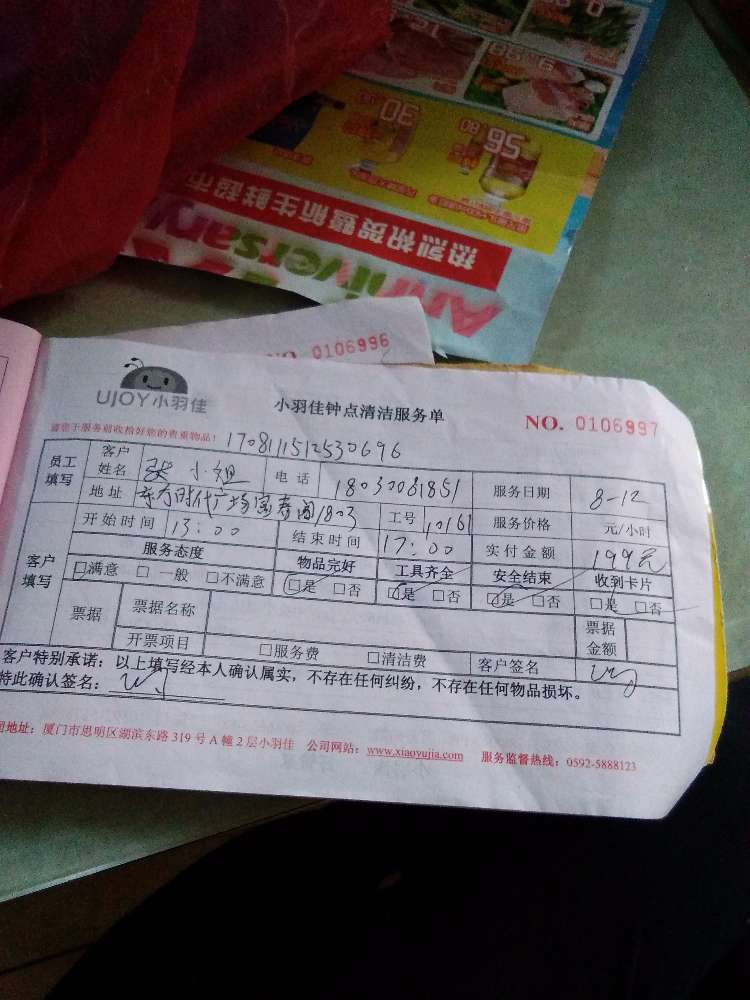 Anniversary
热烈祝贺暨新生鲜超市
56
80
30
NO. 0106996
UJOY小羽佳
小羽佳钟点清洁服务单
NO. 0106997
请您于服务前收拾好您的贵重物品!
1708111512530696
员工填写 客户姓名 张小姐 电话 18030081851 服务日期 8-12
地址 东方时代广场富春阁1803 工号 10161 服务价格 元/小时
客户填写 开始时间 13:00 结束时间 17:00 实付金额 199元
服务态度 物品完好 工具齐全 安全结束 收到卡片
□满意 □一般 □不满意 □是 □否 □是 □否 □是 □否 □是 □否
票据 票据名称 票据金额
开票项目 □服务费 □清洁费 客户签名
客户特别承诺:以上填写经本人确认属实,不存在任何纠纷,不存在任何物品损坏。
特此确认签名:
司地址:厦门市思明区湖滨东路319号A幢2层小羽佳 公司网站:www.xiaoyujia.com 服务监督热线:0592-5888123